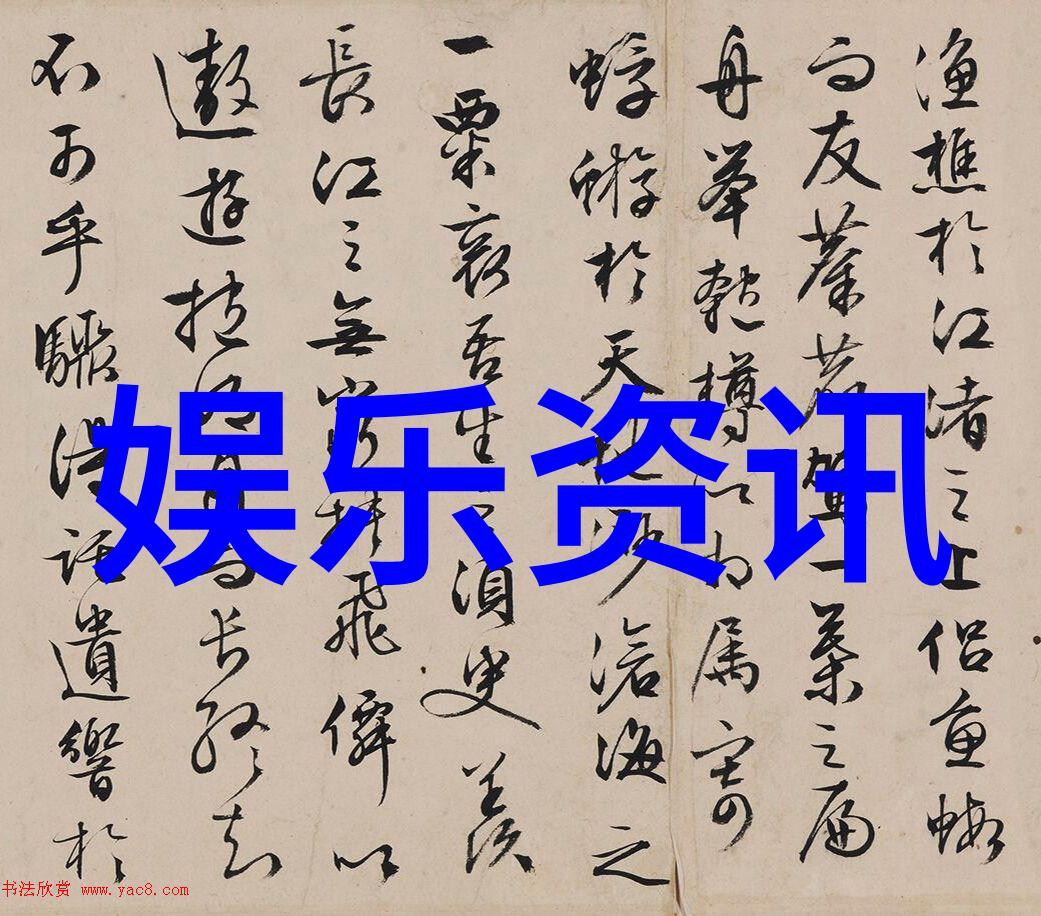 漁樵於江渚之上侶魚蝦
而友麋鹿駕一葉之扁
舟舉匏樽以相属寄
蜉蝣於天地渺滄海之
一粟哀吾生之須臾羨
長江之無窮挾飛僊以
遨遊抱明月而長終知
不可乎驟得託遺響於
娱乐资讯
书法欣赏 www.yac8.com